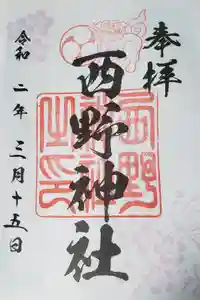 奉拝
西野神社
西野
神社
之印
令和二年三月十五日